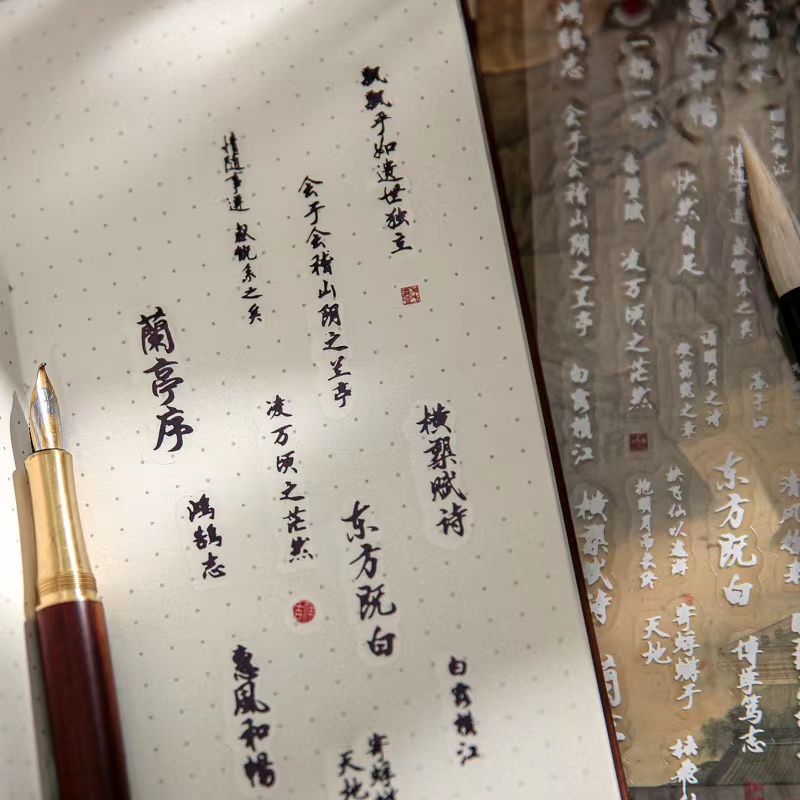 飘飘乎如遗世独立
会于会稽山阴之兰亭
情随事迁 感慨系之矣
蘭亭序
横槊赋诗
凌万顷之茫然
东方既白
鴻鵠志
惠風和暢
白露横江
寄蜉蝣于
天地
惠風和暢
鴻鵠志
情随事迁 感慨系之矣
快然自足
赤壁赋
凌万顷之茫然
会于会稽山阴之兰亭
白露横江
诵明月之诗
歌窈窕之章
东方既白
挟飞仙以遨游
抱明月而长终
横槊赋诗
寄蜉蝣于
天地
博学笃志